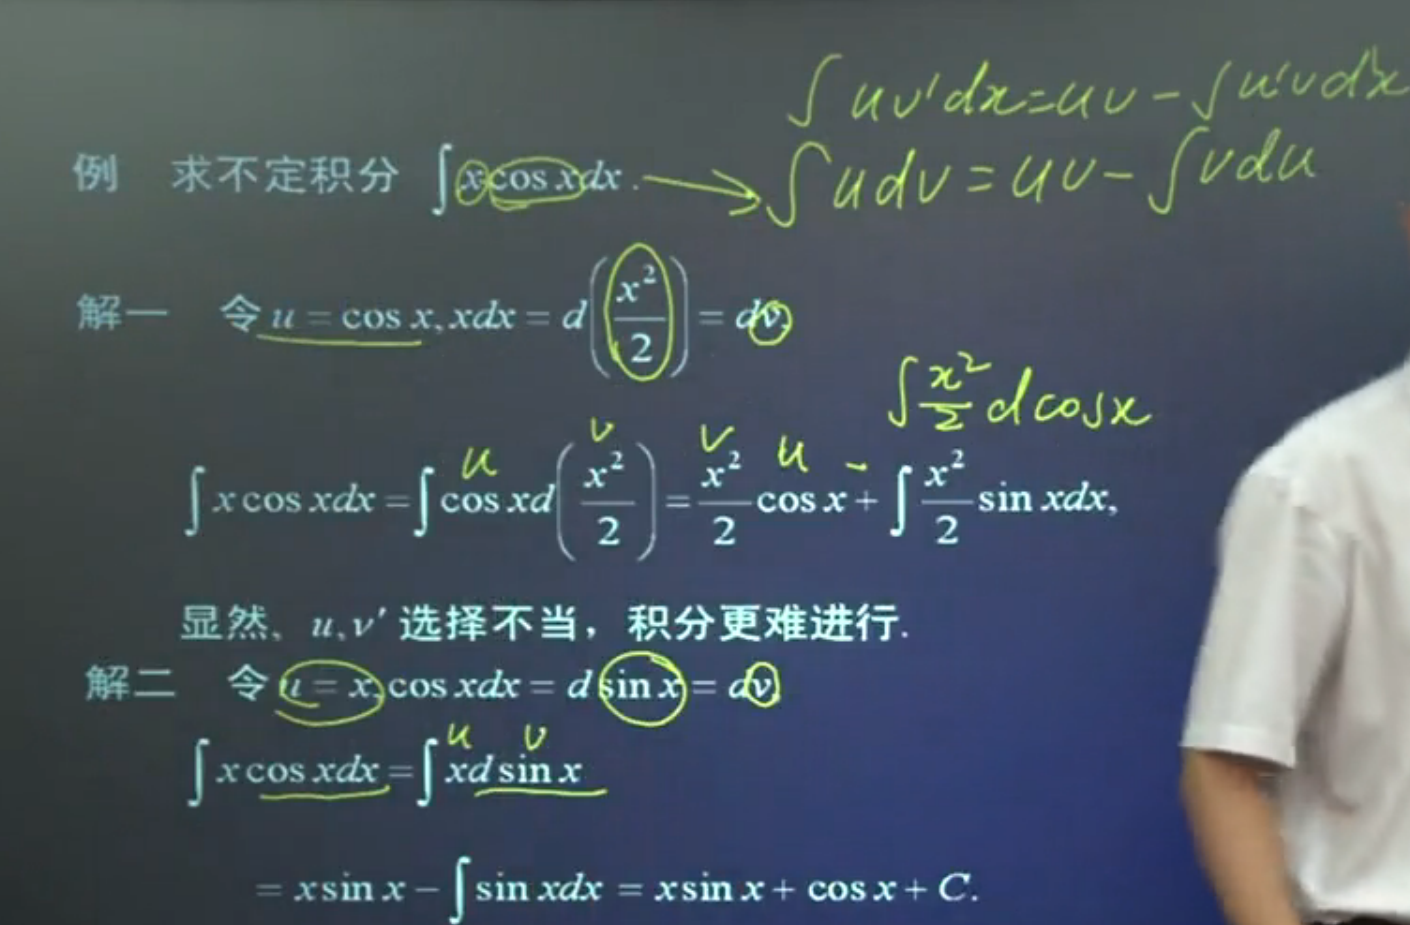 ∫ uv'dx = uv − ∫ u'v dx
例 求不定积分 ∫ x cos x dx. → ∫ u dv = uv − ∫ v du
解一 令 u = cos x, xdx = d(x²/2) = dv,
∫ x²/2 d cos x
u v v u −
∫ x cos xdx = ∫ cos xd(x²/2) = x²/2 cos x + ∫ x²/2 sin xdx,
显然, u,v′ 选择不当，积分更难进行.
解二 令 u = x, cos xdx = d sin x = dv
u v
∫ x cos xdx = ∫ xd sin x
= x sin x − ∫ sin xdx = x sin x + cos x + C.